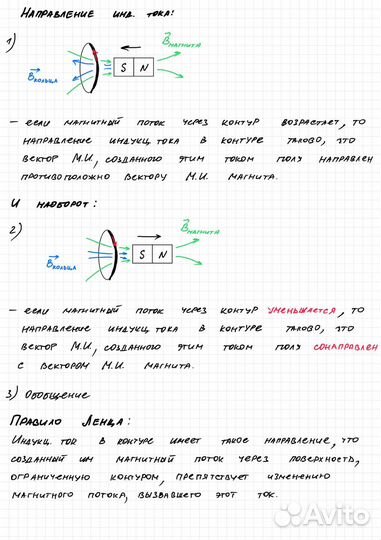 Направление инд. тока:
1)
B магнита
B кольца
S N
– если магнитный поток через контур возрастает, то
направление индукц. тока в контуре таково, что
вектор М.И., созданного этим током поля направлен
противоположно вектору М.И. магнита.
И наоборот:
2)
B магнита
S N
B кольца
– если магнитный поток через контур уменьшается, то
направление индукц. тока в контуре таково, что
вектор М.И., созданного этим током поля сонаправлен
с вектором М.И. магнита.
3) Обобщение
Правило Ленца:
Индукц. ток в контуре имеет такое направление, что
созданный им магнитный поток через поверхность,
ограниченную контуром, препятствует изменению
магнитного потока, вызвавшего этот ток.
Avito